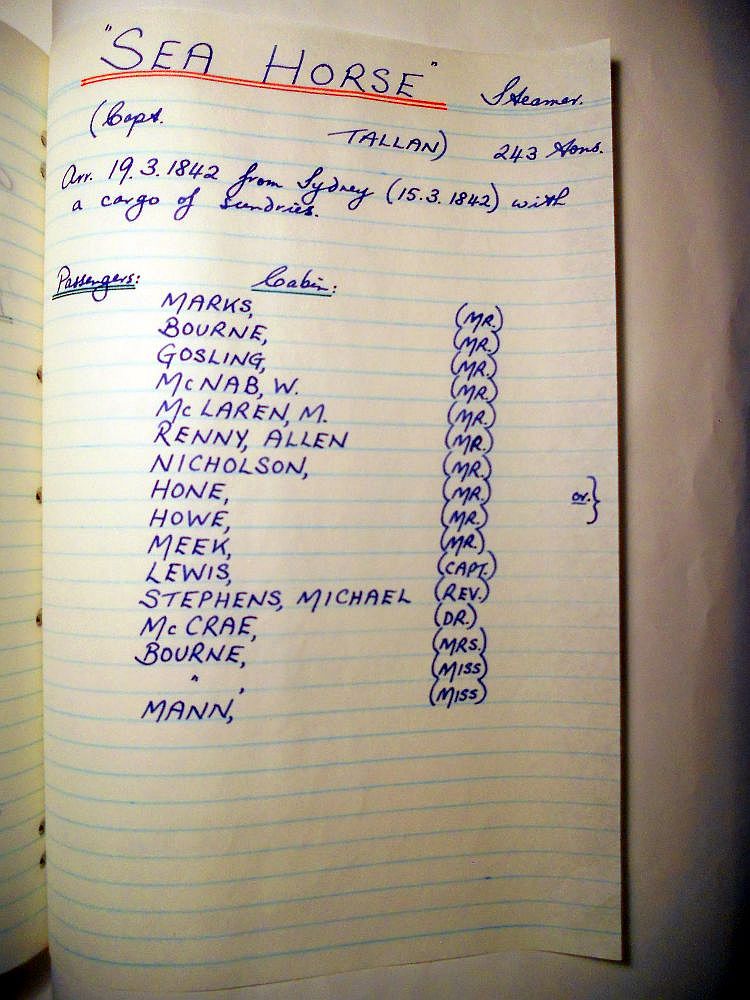 "SEA HORSE" Steamer.
(Capt. TALLAN) 243 tons.
Arr. 19.3.1842 from Sydney (15.3.1842) with
a cargo of sundries.
Passengers: Cabin:
MARKS, (MR.)
BOURNE, (MR.)
GOSLING, (MR.)
McNAB, W. (MR.)
McLAREN, M. (MR.)
RENNY, ALLEN (MR.)
NICHOLSON, (MR.)
HONE, (MR.) or. }
HOWE, (MR.)
MEEK, (MR.)
LEWIS, (CAPT.)
STEPHENS, MICHAEL (REV.)
McCRAE, (DR.)
BOURNE, (MRS.)
" , (MISS)
MANN, (MISS)